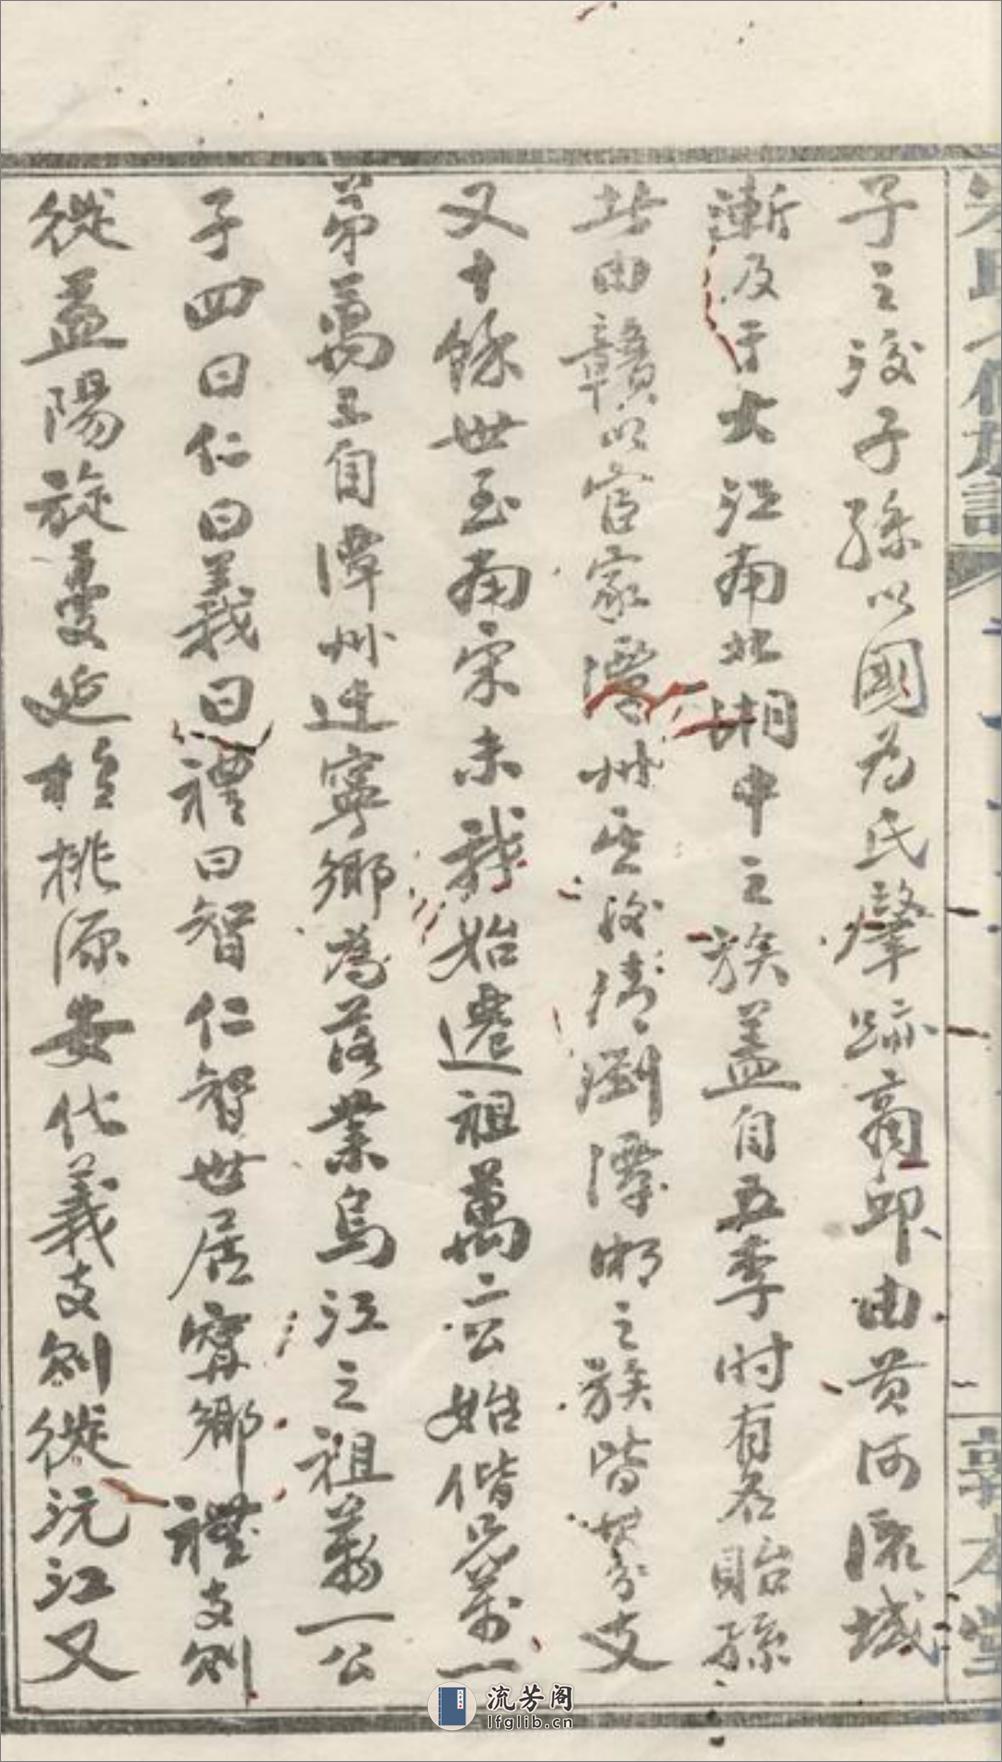 子之後子孫以國為氏肇跡商邱由黃河流域
漸及于大江南北湖中之族蓋自五季時有名貽孫
者由贛以官家潭州其後瀏潭湘之族皆其分支
又十餘世至南宋末我始遷祖萬二公始偕兄萬一
弟萬三自潭州迁寧鄉為落業烏江之祖萬一公
子四曰仁曰義曰禮曰智仁智世居寧鄉禮支則
從益陽旋蔓延於桃源安化義支則從沅江又
敦本堂
流芳阁
lfglib.cn